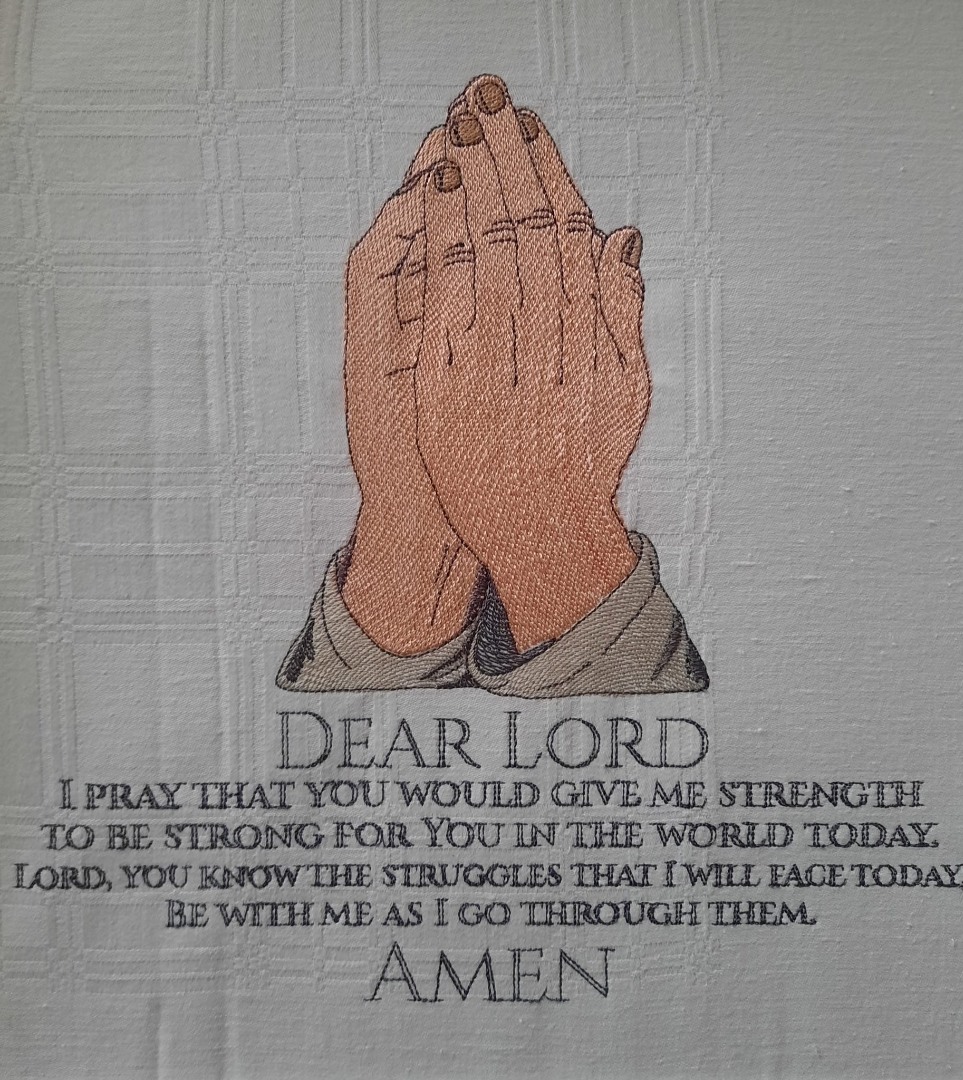 DEAR LORD
I PRAY THAT YOU WOULD GIVE ME STRENGTH
TO BE STRONG FOR YOU IN THE WORLD TODAY.
LORD, YOU KNOW THE STRUGGLES THAT I WILL FACE TODAY,
BE WITH ME AS I GO THROUGH THEM.
AMEN